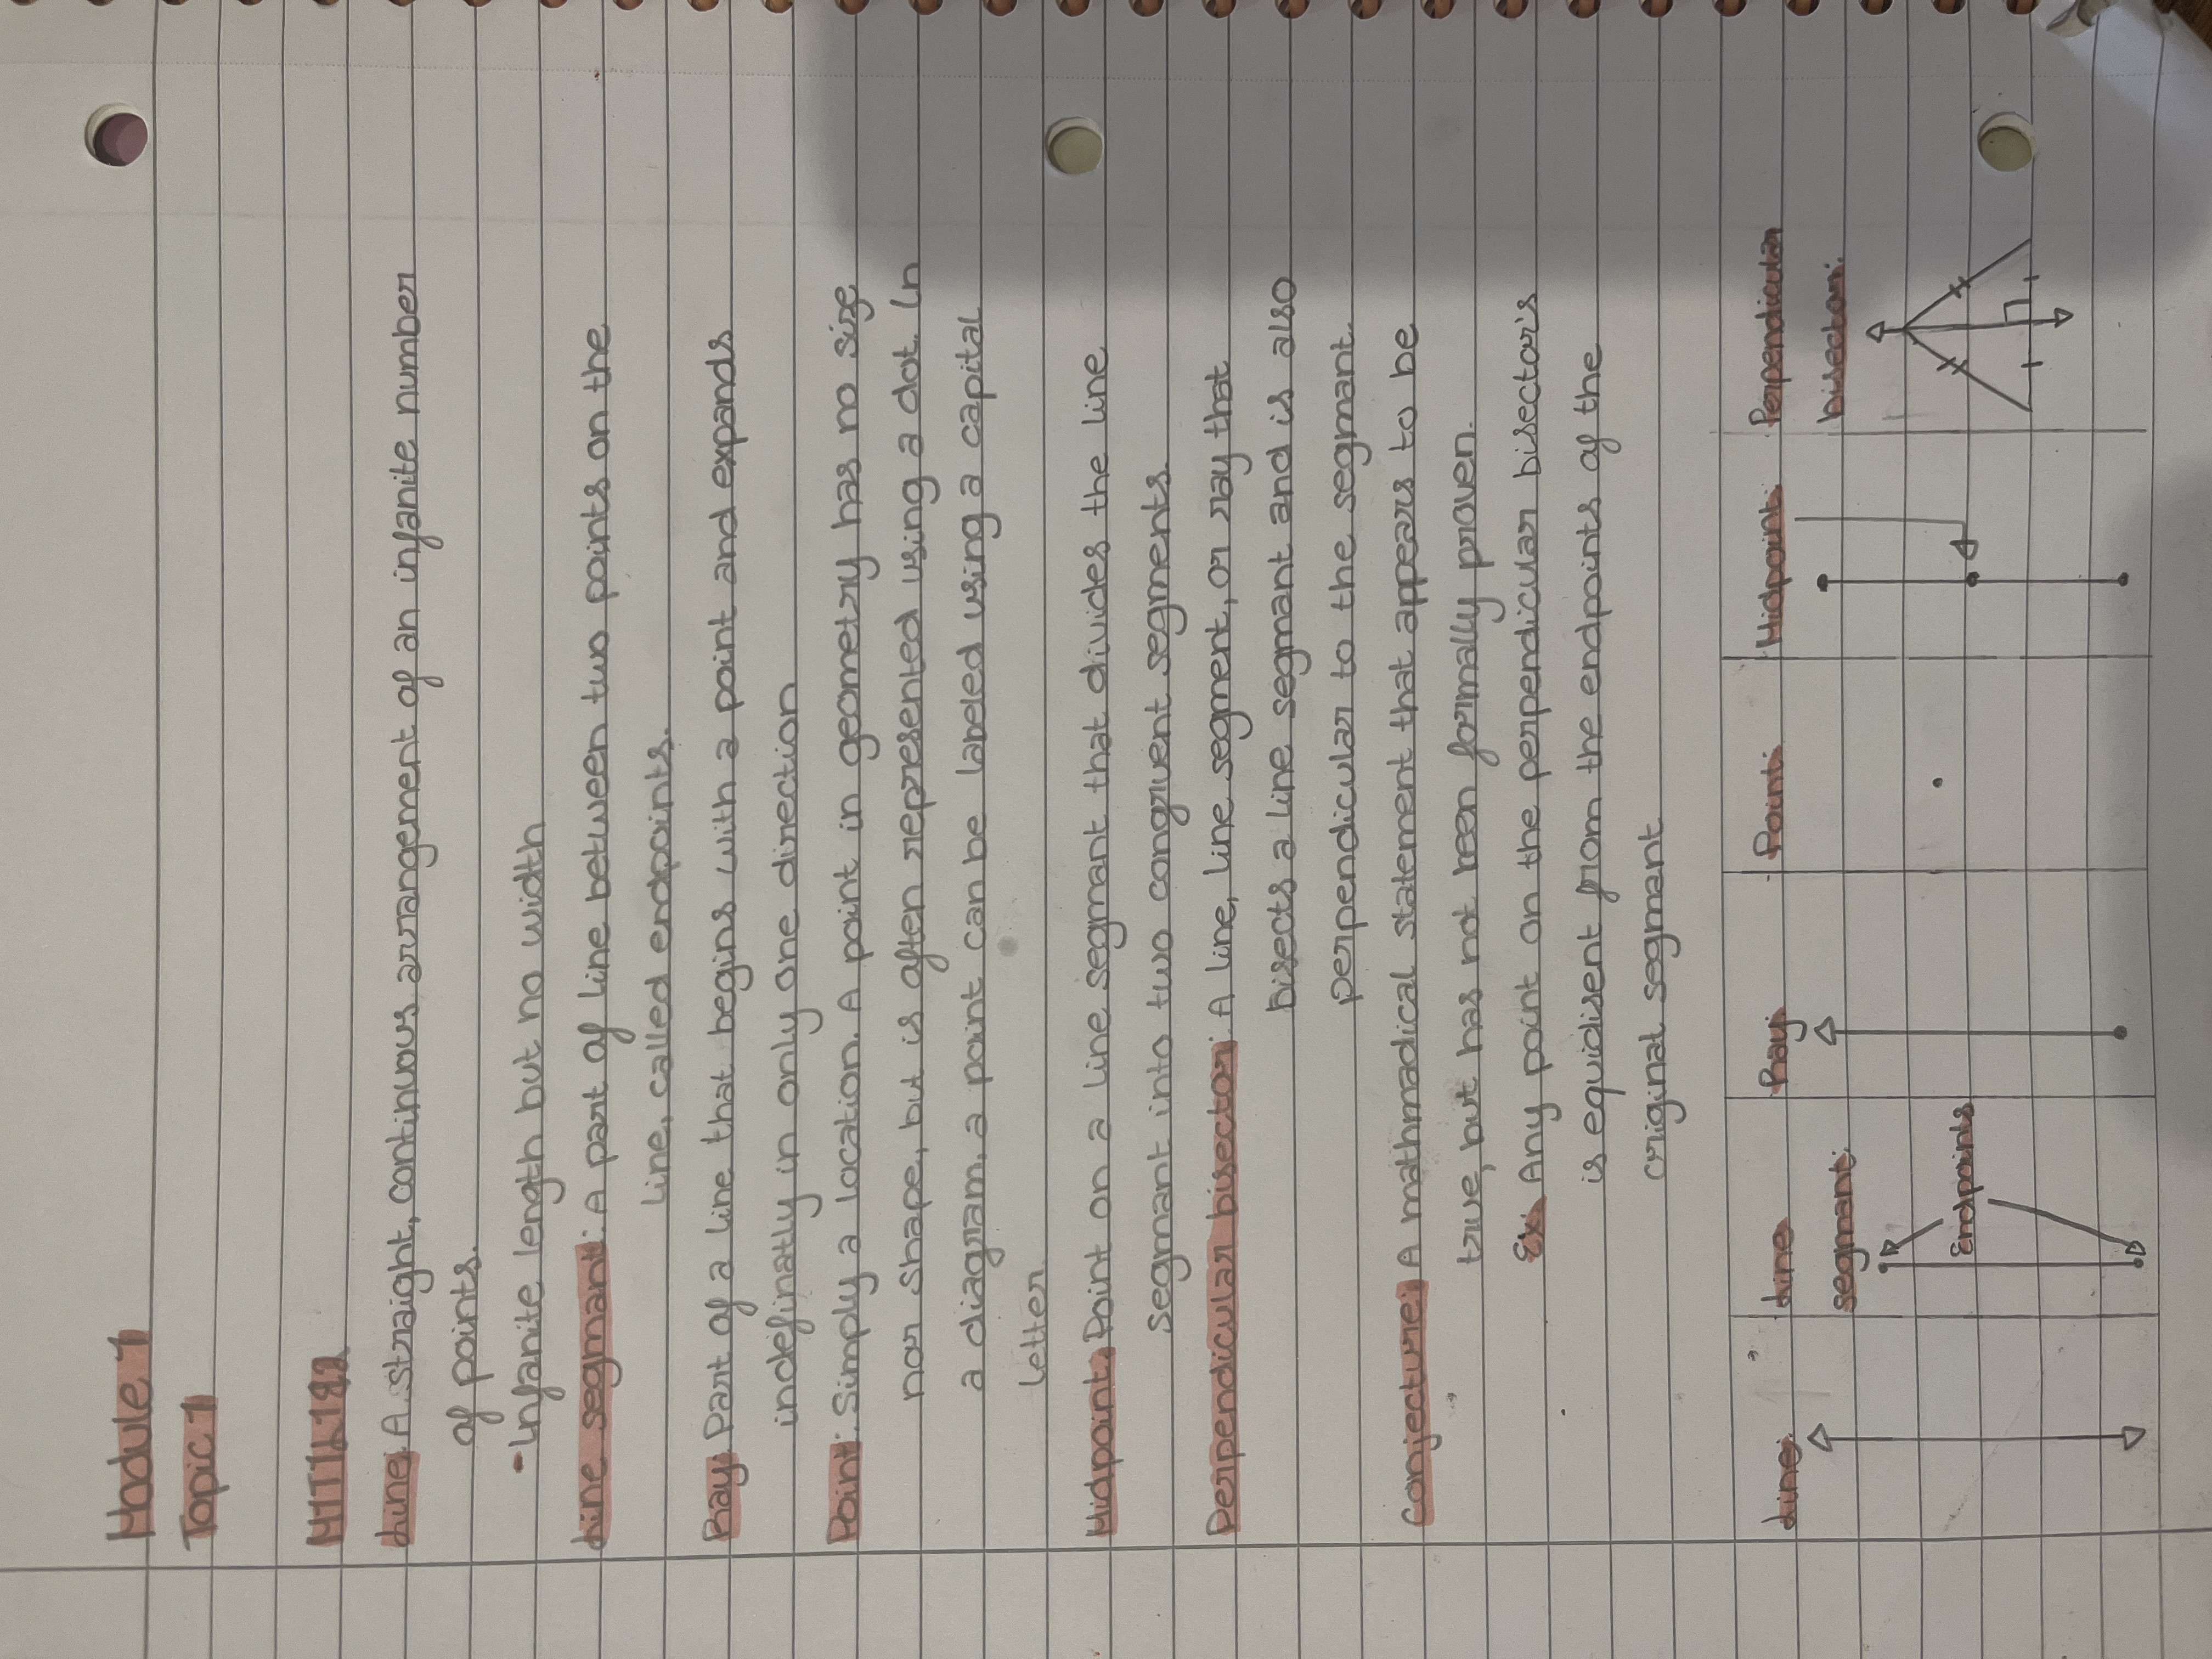 Module 1
Topic 1
M1T1L1&2
Line: A straight, continuous arrangement of an infanite number
of points.
- Infanite length but no width
Line segmant: A part of line between two points on the
line, called endpoints.
Ray: Part of a line that begins with a point and expands
indefinatly in only one direction
Point: Simply a location. A point in geometry has no size
nor shape, but is often represented using a dot. In
a diagram, a point can be labeled using a capital
letter
Midpoint: Point on a line segmant that divides the line
segmant into two congruent segments.
Perpendicular bisector: A line, line segment, or ray that
bisects a line segmant and is also
perpendicular to the segmant.
Conjecture: A mathmadical statement that appears to be
true, but has not been formally proven.
Ex. Any point on the perpendicular bisector's
is equidisent from the endpoints of the
original segmant
Line: Line Ray Point: Midpoint: Perpendicular
segmant: bisector:
Endpoints